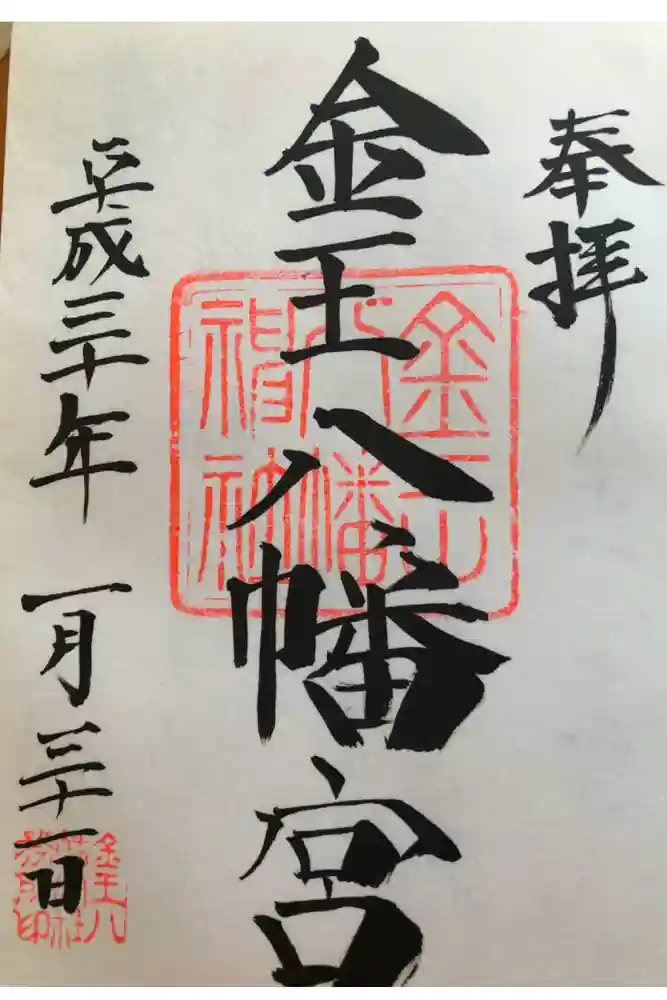 奉拝
金王八幡宮
金王
八幡
神社
平成三十年 一月三十一日
金王八